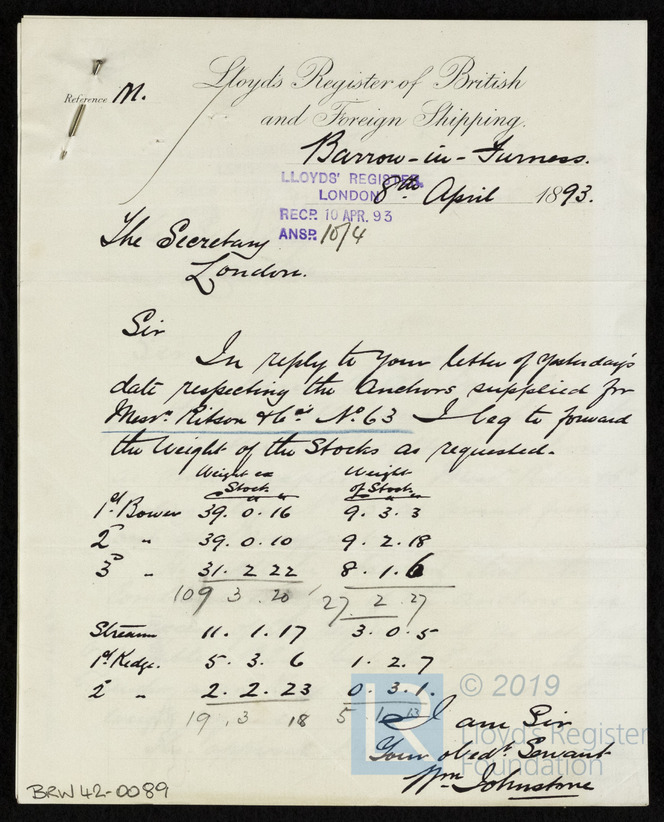 Lloyds Register of British
and Foreign Shipping.
Reference M.
Barrow-in-Furness.
8th April 1893.
LLOYDS' REGISTER,
LONDON
RECD. 10 APR. 93
ANSD. 10/4
The Secretary
London.
Sir
In reply to your letter of yesterday's
date respecting the Anchors supplied for
Messrs Ritson & Co's No 63 I beg to forward
the Weight of the Stocks as requested.
Weight ex Weight
Stock of Stock
1st Bower 39. 0. 16 9. 3. 3
2d " 39. 0. 10 9. 2. 18
3d " 31. 2 22 8. 1. 6
109 3. 20 27. 2. 27
Stream 11. 1. 17 3. 0. 5
1st Kedge. 5. 3. 6 1. 2. 7
2d " 2. 2. 23 0. 3. 1.
19. 3 18 5. 1. 13
I am Sir
Your obedt Servant
Wm Johnstone
BRW42-0089
LR © 2019
Lloyd's Register
Foundation